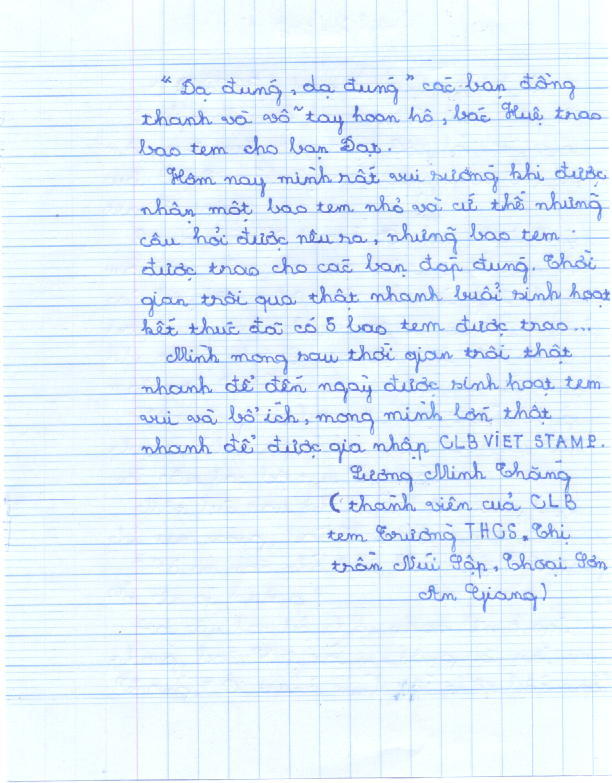 "Dạ đúng, dạ đúng" các bạn đồng
thanh và vỗ tay hoan hô, bác Huệ trao
bao tem cho bạn Đạt.
Hôm nay mình rất vui sướng khi được
nhận một bao tem nhỏ và cứ thế những
câu hỏi được nêu ra, những bao tem
được trao cho các bạn đáp đúng. Thời
gian trôi qua thật nhanh buổi sinh hoạt
kết thúc đã có 5 bao tem được trao...
Mình mong sau thời gian trôi thật
nhanh để đến ngày được sinh hoạt tem
vui và bổ ích, mong mình lớn thật
nhanh để được gia nhập CLB VIET STAMP.
Lương Minh Thắng
(thành viên của CLB
tem Trường THCS. Thị
trấn Núi Sập, Thoại Sơn
An Giang)